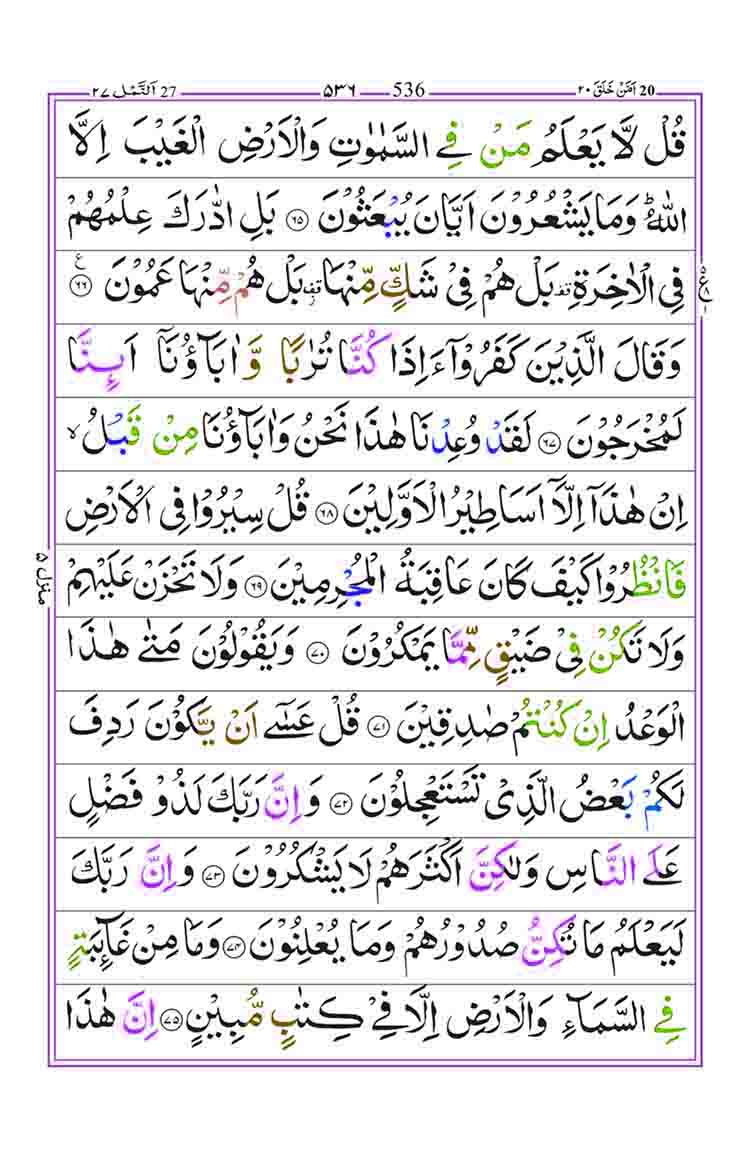 27 اَلنَّمْل ٢٧ ۵۳۶ 536 اَمَّنْ خَلَقَ ٢٠ 20
قُلْ لَّا يَعْلَمُ مَنْ فِي السَّمٰوٰتِ وَالْاَرْضِ الْغَيْبَ اِلَّا
اللّٰهُ ؕ وَمَا يَشْعُرُوْنَ اَيَّانَ يُبْعَثُوْنَ ۝۶۵ بَلِ ادّٰرَكَ عِلْمُهُمْ
فِي الْاٰخِرَةِ ۫ بَلْ هُمْ فِيْ شَكٍّ مِّنْهَا ۫ بَلْ هُمْ مِّنْهَا عَمُوْنَ ۝۶۶ ع
وَقَالَ الَّذِيْنَ كَفَرُوْۤا ءَاِذَا كُنَّا تُرٰبًا وَّ اٰبَآؤُنَاۤ اَئِنَّا
لَمُخْرَجُوْنَ ۝۶۷ لَقَدْ وُعِدْنَا هٰذَا نَحْنُ وَاٰبَآؤُنَا مِنْ قَبْلُ ۙ
اِنْ هٰذَاۤ اِلَّاۤ اَسَاطِيْرُ الْاَوَّلِيْنَ ۝۶۸ قُلْ سِيْرُوْا فِي الْاَرْضِ
فَانْظُرُوْا كَيْفَ كَانَ عَاقِبَةُ الْمُجْرِمِيْنَ ۝۶۹ وَلَا تَحْزَنْ عَلَيْهِمْ
وَلَا تَكُنْ فِيْ ضَيْقٍ مِّمَّا يَمْكُرُوْنَ ۝۷۰ وَيَقُوْلُوْنَ مَتٰى هٰذَا
الْوَعْدُ اِنْ كُنْتُمْ صٰدِقِيْنَ ۝۷۱ قُلْ عَسٰۤى اَنْ يَّكُوْنَ رَدِفَ
لَكُمْ بَعْضُ الَّذِيْ تَسْتَعْجِلُوْنَ ۝۷۲ وَاِنَّ رَبَّكَ لَذُوْ فَضْلٍ
عَلَى النَّاسِ وَلٰكِنَّ اَكْثَرَهُمْ لَا يَشْكُرُوْنَ ۝۷۳ وَاِنَّ رَبَّكَ
لَيَعْلَمُ مَا تُكِنُّ صُدُوْرُهُمْ وَمَا يُعْلِنُوْنَ ۝۷۴ وَمَا مِنْ غَآئِبَةٍ
فِي السَّمَآءِ وَالْاَرْضِ اِلَّا فِيْ كِتٰبٍ مُّبِيْنٍ ۝۷۵ اِنَّ هٰذَا
منزل ۵